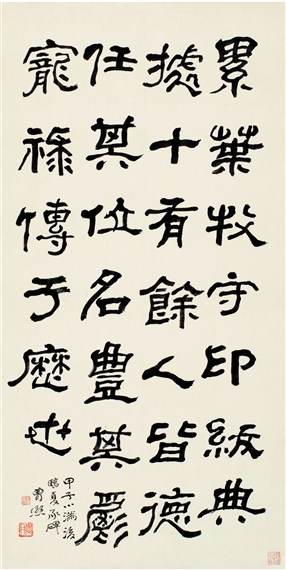 累葉牧守印紱典
據十有餘人皆德
任其位名豐其爵
寵祿傳于歷世
甲子小滿後
臨夏承碑
曾熙